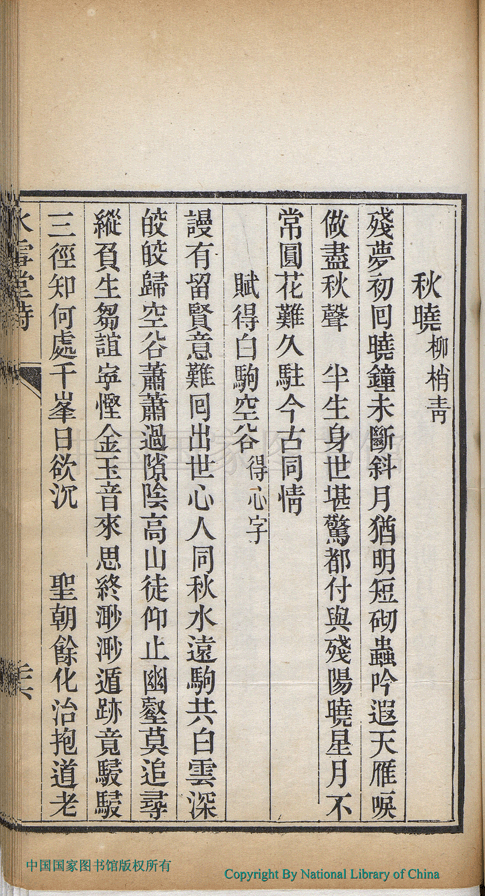 秋曉 柳梢青
殘夢初回曉鐘未斷斜月猶明短砌蟲吟遐天雁唳
做盡秋聲　半生身世堪驚都付與殘陽曉星月不
常圓花難久駐今古同情
賦得白駒空谷 得心字
謾有留賢意難囘出世心人同秋水遠駒共白雲深
皎皎歸空谷蕭蕭過隙陰高山徒仰止幽壑莫追尋
縱負生芻誼寧慳金玉音來思終渺渺遁跡竟駸駸
三徑知何處千峯日欲沉　　聖朝餘化治抱道老
中国国家图书馆版权所有
Copyright By National Library of China